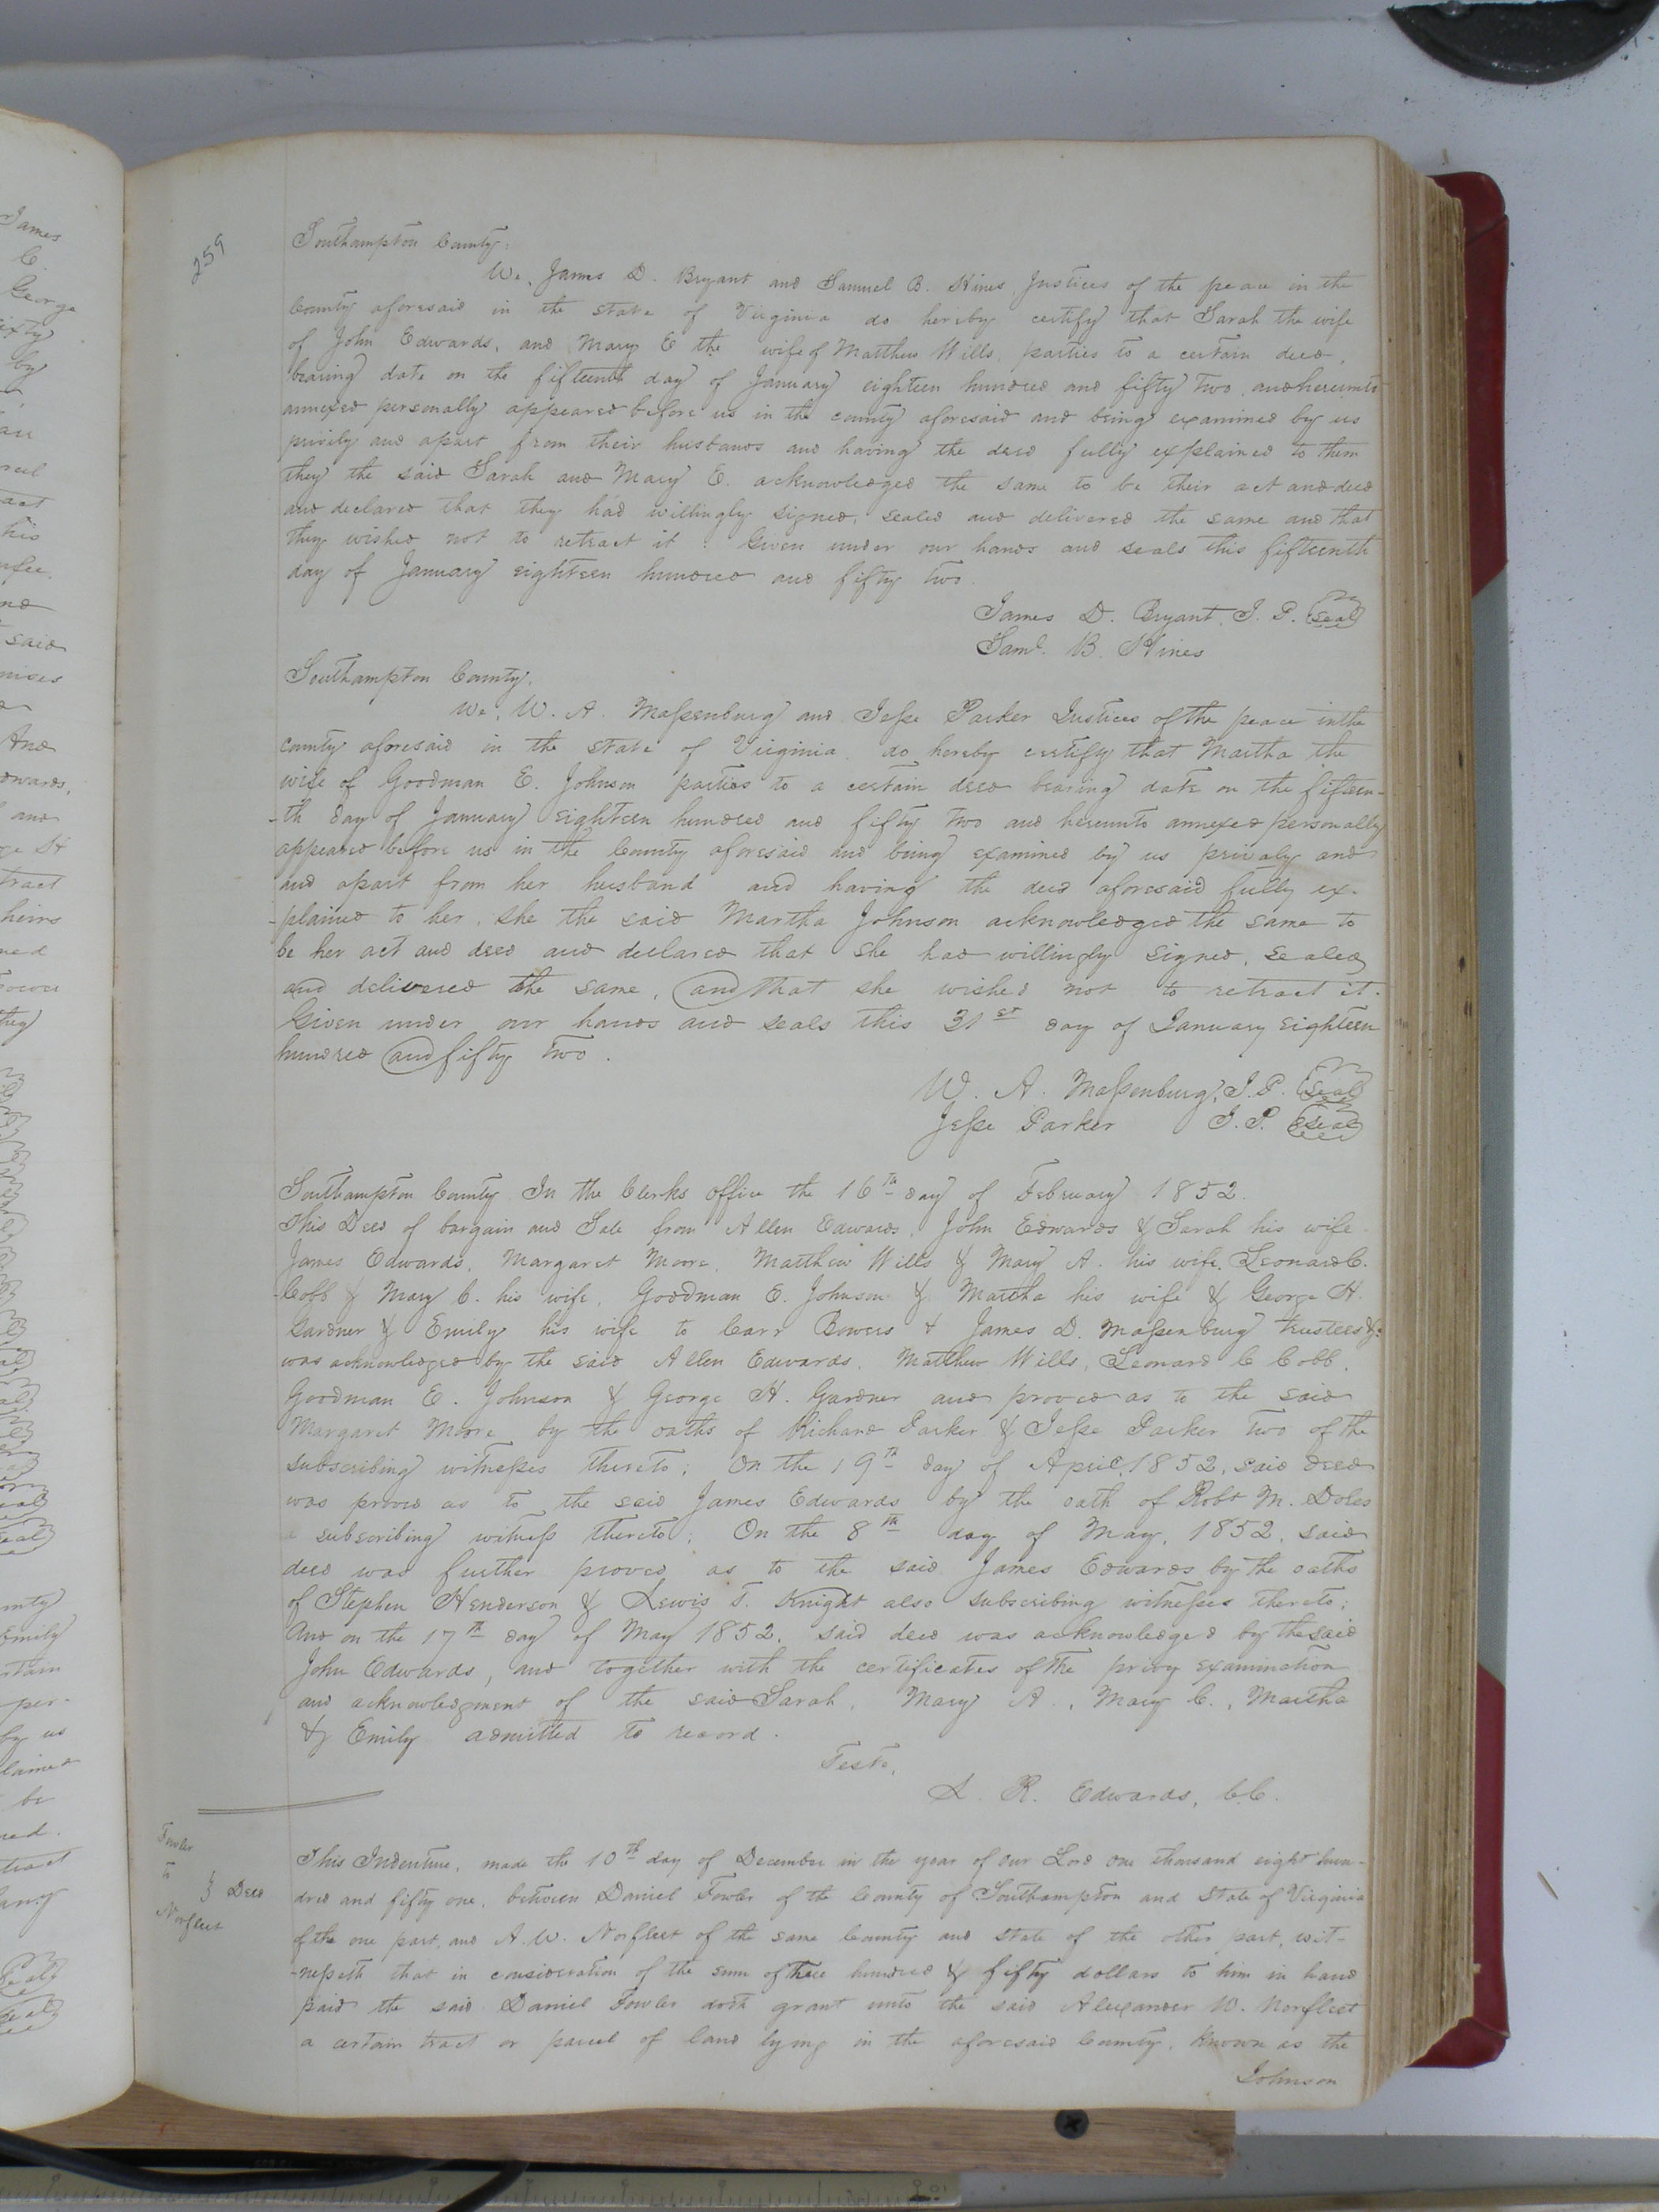 259
Southampton County:
We, James D. Bryant and Samuel B. Hines, Justices of the peace in the
County aforesaid in the state of Virginia do hereby certify that Sarah the wife
of John Edwards, and Mary E the wife of Matthew Wills, parties to a certain deed,
bearing date on the fifteenth day of January eighteen hundred and fifty two, and hereunto
annexed personally appeared before us in the county aforesaid and being examined by us
privily and apart from their husbands and having the deed fully explained to them
they the said Sarah and Mary E. acknowledged the same to be their act and deed
and declared that they had willingly signed, sealed and delivered the same and that
they wished not to retract it: Given under our hands and seals this fifteenth
day of January eighteen hundred and fifty two.
James D. Bryant, J. P. Seal
Saml. B. Hines
Southampton County.
We, W. A. Massenburg and Jesse Parker Justices of the peace in the
county aforesaid in the state of Virginia do hereby certify that Martha the
wife of Goodman E. Johnson parties to a certain deed bearing date on the fifteen-
-th day of January eighteen hundred and fifty two and hereunto annexed personally
appeared before us in the County aforesaid and being examined by us privaly and
and apart from her husband and having the deed aforesaid fully ex-
-plained to her, she the said Martha Johnson acknowledged the same to
be her act and deed and declared that she had willingly signed, sealed
and delivered the same, and that she wished not to retract it.
Given under our hands and seals this 31st day of January eighteen
hundred and fifty two.
W. A. Massenburg, J. P. Seal
Jesse Parker J. P. Seal
Southampton County In the Clerks office the 16th day of February 1852.
This Deed of bargain and Sale from Allen Edwards, John Edwards & Sarah his wife
James Edwards, Margaret Moore, Matthew Wills & Mary A. his wife, Leonard C.
Cobb & Mary C. his wife, Goodman E. Johnson & Martha his wife & George H.
Gardner & Emily his wife to Carr Bowers & James D. Massenburg trustees &c
was acknowledged by the said Allen Edwards, Matthew Wills, Leonard C Cobb,
Goodman E. Johnson & George H. Gardner and proved as to the said
Margaret Moore by the oaths of Richard Parker & Jesse Parker two of the
subscribing witnesses thereto; On the 19th day of April, 1852, said deed
was proved as to the said James Edwards by the oath of Robt M. Doles
a subscribing witness thereto; On the 8th day of May, 1852, said
deed was further proved as to the said James Edwards by the oaths
of Stephen Henderson & Lewis T. Knight also subscribing witnesses thereto;
And on the 17th day of May 1852, said deed was acknowledged by the said
John Edwards, and together with the certificates of the privy examination
and acknowledgment of the said Sarah, Mary A., Mary C., Martha
& Emily admitted to record.
Teste,
L. R. Edwards, C.C.
Fowler
to } Deed
Norfleet
This Indenture, made the 10th day of December in the year of our Lord one thousand eight hun-
dred and fifty one, between Daniel Fowler of the County of Southampton and State of Virginia
of the one part, and A. W. Norfleet of the same County and State of the other part, wit-
-nesseth that in consideration of the sum of three hundred & fifty dollars to him in hand
paid the said Daniel Fowler doth grant unto the said Alexander W. Norfleet
a certain tract or parcel of land lying in the aforesaid County, known as the
Johnson